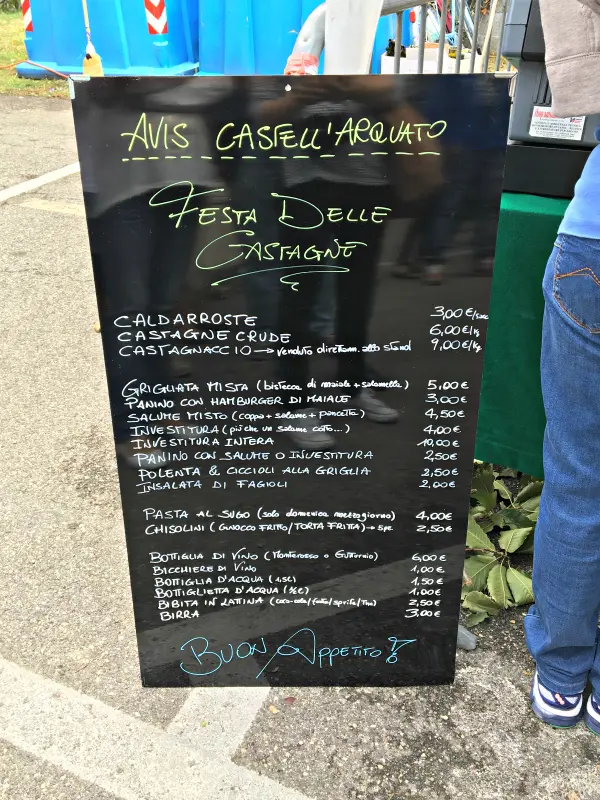 AVIS CASTELL'ARQUATO
FESTA DELLE
CASTAGNE
CALDARROSTE 3,00 €/sac
CASTAGNE CRUDE 6,00 €/kg
CASTAGNACCIO → venduto direttam. allo stand 9,00 €/kg
GRIGLIATA MISTA (bistecca di maiale + salamella) 5,00 €
PANINO CON HAMBURGER DI MAIALE 3,00 €
SALUME MISTO (coppa + salame + pancetta) 4,50 €
INVESTITURA (più che un salame cotto...) 4,00 €
INVESTITURA INTERA 10,00 €
PANINO CON SALUME O INVESTITURA 2,50 €
POLENTA & CICCIOLI ALLA GRIGLIA 2,50 €
INSALATA DI FAGIOLI 2,00 €
PASTA AL SUGO (solo domenica mezzogiorno) 4,00 €
CHISOLINI (GNOCCO FRITTO/TORTA FRITTA) → 5pz. 2,50 €
BOTTIGLIA DI VINO (Monterosso o Gutturnio) 6,00 €
BICCHIERE DI VINO 1,00 €
BOTTIGLIA D'ACQUA (1,5L) 1,50 €
BOTTIGLIETTA D'ACQUA (½L) 1,00 €
BIBITA IN LATTINA (coca-cola/fanta/sprite/The) 2,50 €
BIRRA 3,00 €
BUON APPETITO!